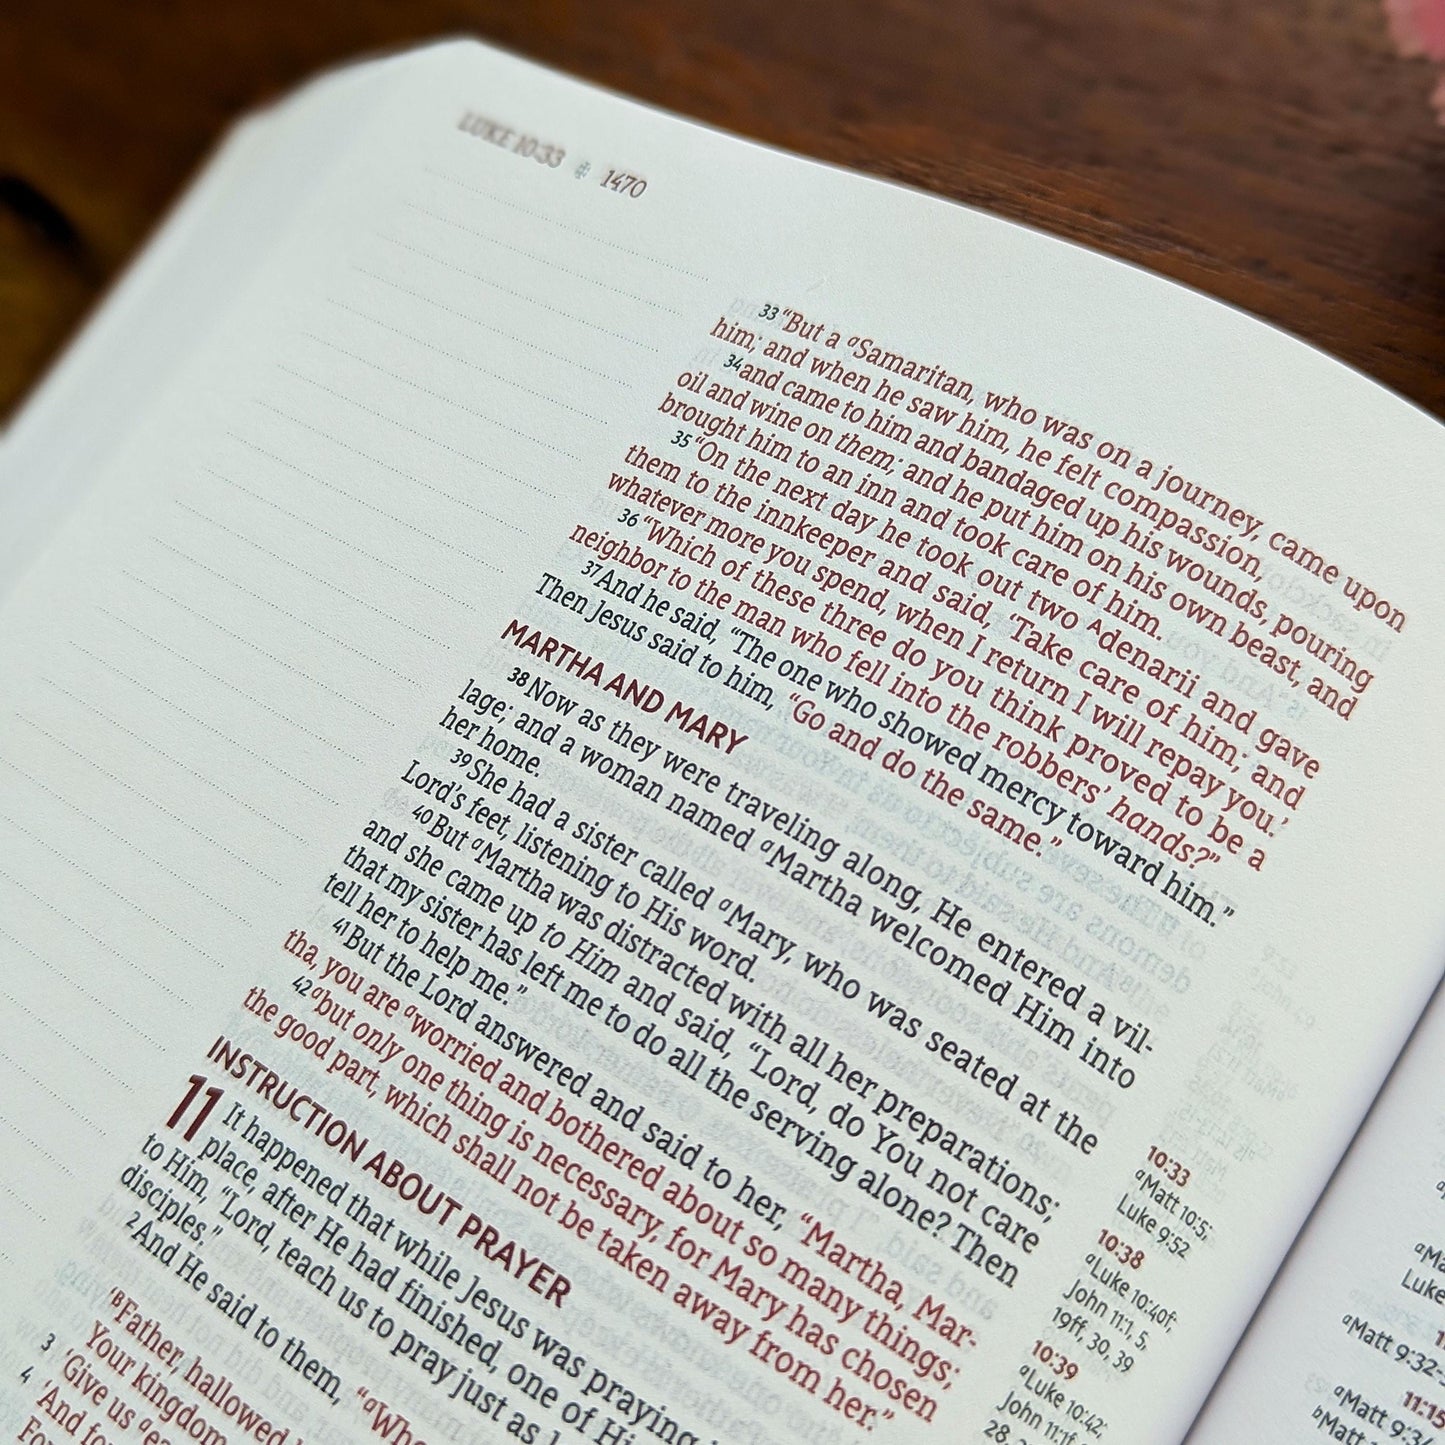 LUKE 10:33 # 1470
33 “But a aSamaritan, who was on a journey, came upon
him; and when he saw him, he felt compassion,
34 and came to him and bandaged up his wounds, pouring
oil and wine on them; and he put him on his own beast, and
brought him to an inn and took care of him.
35 “On the next day he took out two Adenarii and gave
them to the innkeeper and said, ‘Take care of him; and
whatever more you spend, when I return I will repay you.’
36 “Which of these three do you think proved to be a
neighbor to the man who fell into the robbers’ hands?”
37 And he said, “The one who showed mercy toward him.”
Then Jesus said to him, “Go and do the same.”
MARTHA AND MARY
38 Now as they were traveling along, He entered a vil-
lage; and a woman named aMartha welcomed Him into
her home.
39 She had a sister called aMary, who was seated at the
Lord’s feet, listening to His word.
40 But aMartha was distracted with all her preparations;
and she came up to Him and said, “Lord, do You not care
that my sister has left me to do all the serving alone? Then
tell her to help me.”
41 But the Lord answered and said to her, “Martha, Mar-
tha, you are aworried and bothered about so many things;
42 abut only one thing is necessary, for Mary has chosen
the good part, which shall not be taken away from her.”
INSTRUCTION ABOUT PRAYER
11 It happened that while Jesus was praying
place, after He had finished, one of Hi
to Him, “Lord, teach us to pray just as
disciples.”
2 And He said to them, “aWhe
‘BFather, hallowed
Your kingdom
3 ‘Give us aea
4 ‘And fo
10:33
aMatt 10:5;
Luke 9:52
10:38
aLuke 10:40f;
John 11:1, 5,
19ff, 30, 39
10:39
aLuke 10:42;
John 11:1f
28,
Luke
aMatt 9:32-
11:15
aMatt 9:34
bMatt